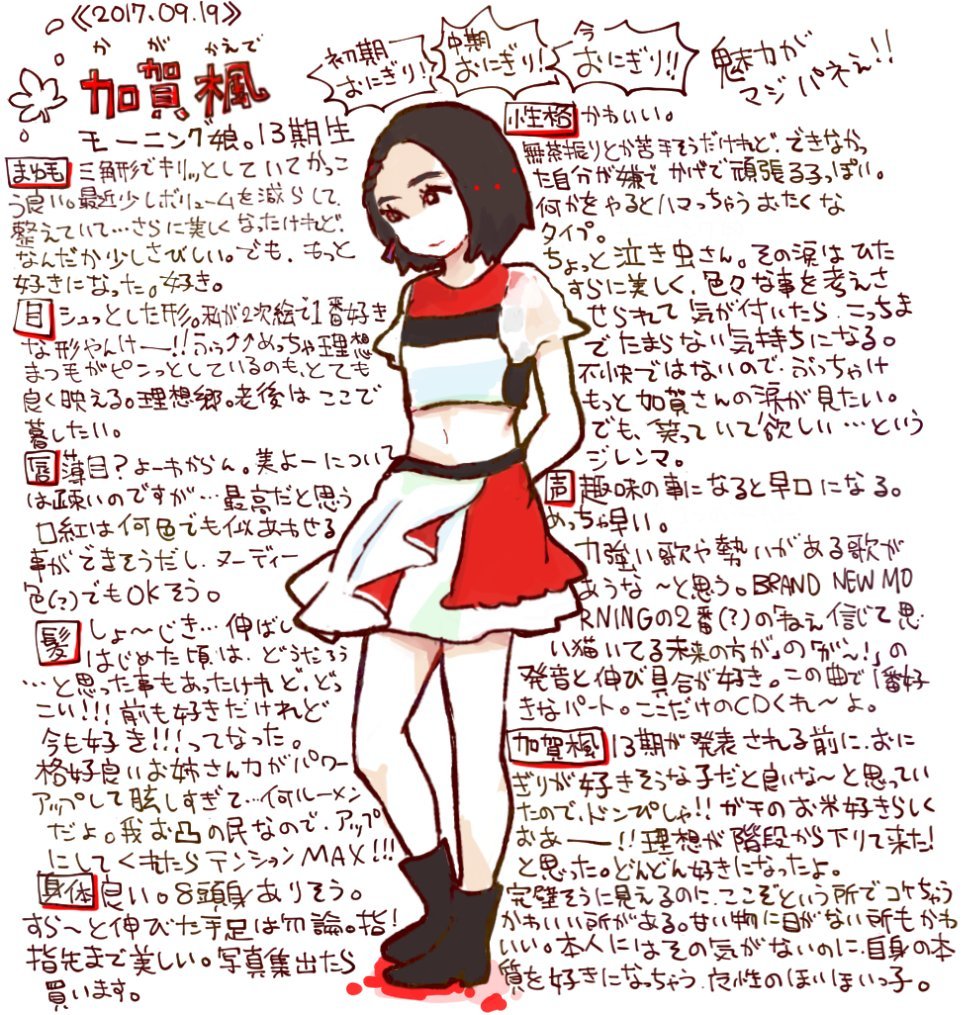 《2017.09.19》
かがかえで
加賀楓
モーニング娘。13期生
初期おにぎり!
中期おにぎり!
今おにぎり!!
魅力が
マジパネぇ!!
まゆ毛 三角形でキリッとしていてかっこ
う良い。最近少しボリュームを減らして、
整えていて…さらに美しくなったけれど、
なんだか少しさびしい。でも、もっと
好きになった。好き。
目 シュっとした形。私が2次絵で1番好き
な形やんけー!!ふぅ↑↑めっちゃ理想
まつ毛がピンっとしているのも、とても
良く映える。理想郷。老後はここで
暮したい。
唇 薄目?よーわからん。美よーについて
は疎いのですが…最高だと思う
口紅は何色でも似あわせる
事ができそうだし、ヌーディー
色(?)でもOKそう。
髪 しょ〜じき…伸ばし
はじめた頃は、どうだろう
…と思った事もあったけれど、どっ
こい!!!前も好きだけれど
今も好き!!!ってなった。
格好良いお姉さん力がパワー
アップして眩しすぎて…何ルーメン
だよ。我お凸の民なので、アップ
にしてくれたらテンションMAX!!!
身体 良い。8頭身ありそう。
すら〜と伸びた手足は勿論。指!
指先まで美しい。写真集出たら
買います。
性格 かわいい。
無茶振りとか苦手そうだけれど、できなかっ
た自分が嫌で かげで頑張るっぽい。
何かをやるとハマっちゃうおたくな
タイプ。
ちょっと泣き虫さん。その涙はひた
すらに美しく、色々な事を考えさ
せられて気が付いたら、こっちま
でたまらない気持ちになる。
不快ではないので、ぶっちゃけ
もっと加賀さんの涙が見たい。
でも、笑っていて欲しい…という
ジレンマ。
声 趣味の事になると早口になる。
めっちゃ早い。
力強い歌や勢いがある歌が
あうな〜と思う。BRAND NEW MO
RNINGの2番(?)の「ねぇ信じて思
い描いてる未来の方が」の「が〜!」の
発音と伸び具合が好き。この曲で1番好
きなパート。ここだけのCDくれ〜よ。
加賀楓 13期が発表される前に、おに
ぎりが好きそうな子だと良いな〜と思ってい
たので、ドンぴしゃ!!ガチのお米好きらしく
おぁー!!理想が階段から下りて来た!
と思った。どんどん好きになったよ。
完璧そうに見えるのに、ここぞという所でコケちゃう
かわいい所がある。甘い物に目がない所もかわ
いい。本人にはその気がないのに、自身の本
質を好きになっちゃう、女性のほいほいっ子。